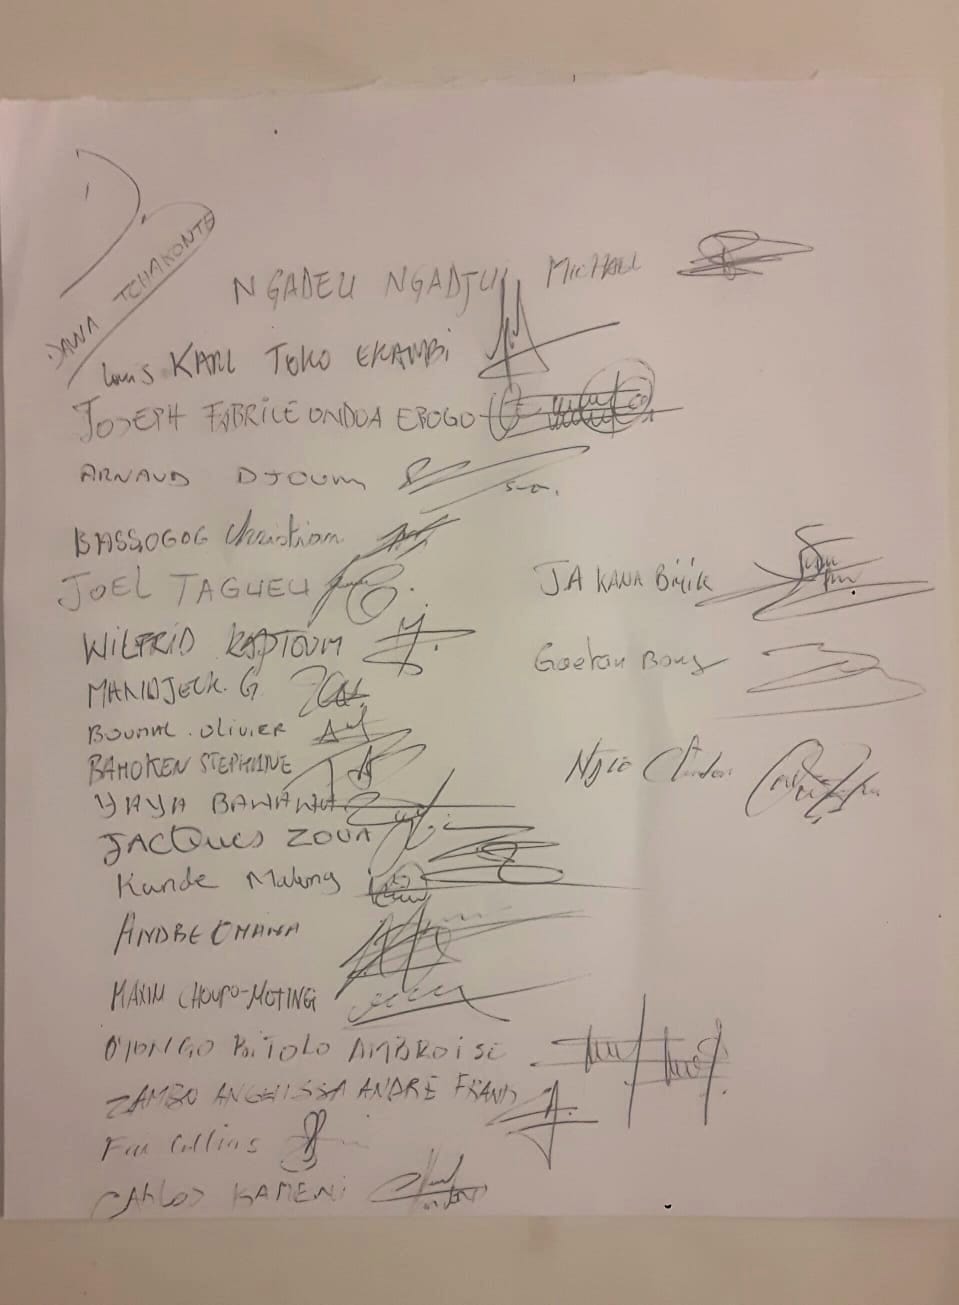 DAWA TCHAKONTE
NGADEU NGADJUI MicHAEL
Louis KARL TOKO EKAMBi
JOSEPH FABRICE ONDOA EBOGO
ARNAUD DJOUM
BASSOGOG Christian
JOEL TAGUEU
JA KANA Biyik
WILFRID KAPTOUM
Gaetan Bong
MANDJECK. G
BOUMAL. OliviER
BAHOKEN STEPHANE
Njie Clinton
YAYA BANANA
JACQues ZOUA
Kunde Malong
ANDRE ONANA
MAXIM CHOUPO-MOTING
OYONGO BiTOLO AMBROiSE
ZAMBO ANGUISSA ANDRE FRANK
Fai Collins
CARLOS KAMENi